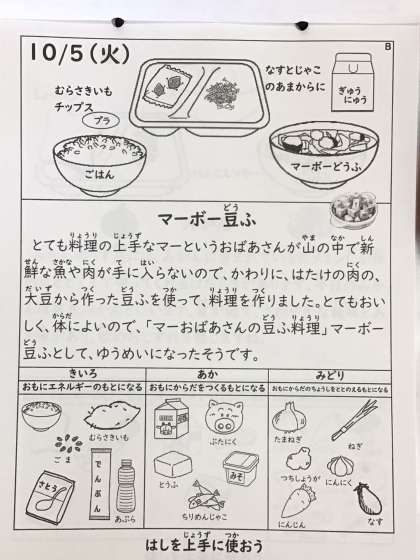 10/5(火)
B
むらさきいも
チップス
プラ
なすとじゃこ
のあまからに
ぎゅう
にゅう
ごはん
マーボーどうふ
マーボー豆ふ
とても料理の上手なマーというおばあさんが山の中で新
鮮な魚や肉が手に入らないので、かわりに、はたけの肉の、
大豆から作った豆ふを使って、料理を作りました。とてもおい
しく、体によいので、「マーおばあさんの豆ふ料理」マーボー
豆ふとして、ゆうめいになったそうです。
きいろ
あか
みどり
おもにエネルギーのもとになる
おもにからだをつくるもとになる
おもにからだのちょうしをととのえるもとになる
むらさきいも
ごま
さとう
でんぷん
あぶら
ぶたにく
とうふ
みそ
ちりめんじゃこ
たまねぎ
ねぎ
つちしょうが
にんにく
にんじん
なす
はしを上手に使おう